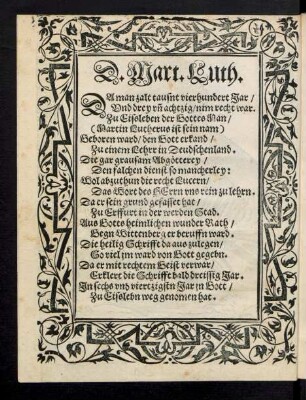 D. Mart. Luth.
DA man zalt tausnt vierhundert Jar /
Vnd drey vñ achtzig / nim recht war.
Zu Eisleben der Gottes Man /
(Martin Lutherus ist sein nam)
Geboren ward / den Gott erkand /
Zu einem Lehrr in Deudschenland.
Die gar grausam Abgötterey /
Den falchen dienst so mancherley:
Wol abzuthun die recht Lucern /
Das Wort des HErrn vns rein zu lehrn.
Da er sein grund gefasset hat /
Zu Erffurt in der werden Stad.
Aus Gottes heimlichen wunder Rath /
Gegn Wittenberg er beruffn ward.
Die heilig Schrifft da aus zulegen /
So viel jm ward von Gott gegebn.
Da er mit rechtem Geist verwar /
Erklert die Schrifft bald dreissig Jar.
Jn sechs vnd viertzigstn Jar jn Gott /
Zu Eislebn weg genomen hat.